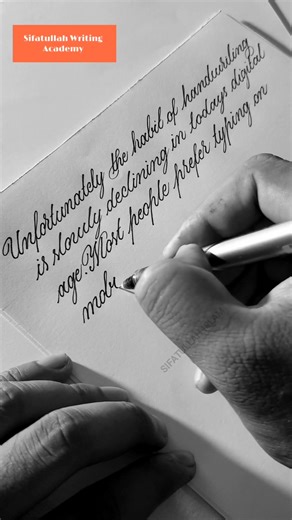 Sifatullah Writing
Academy
Unfortunately the habit of handwriting
is slowly declining in todays digital
age. Most people prefer typing on
mobi